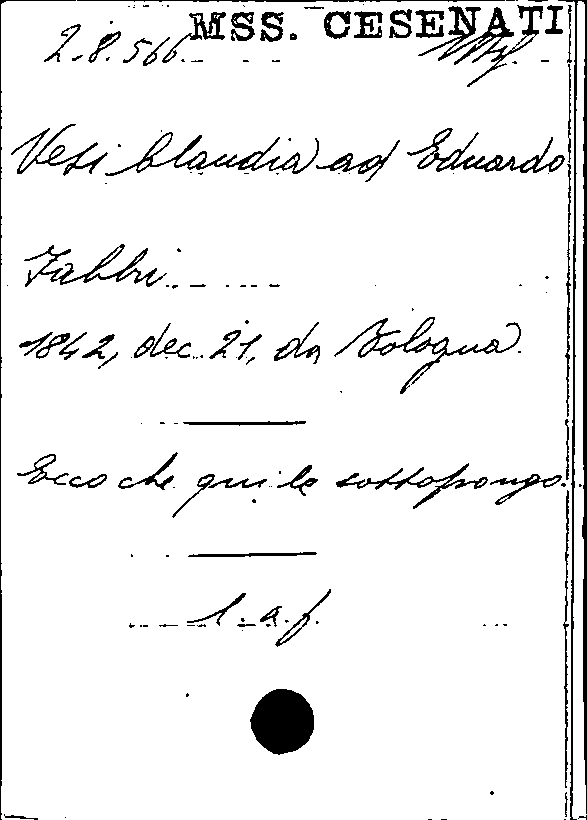 MSS. CESENATI
2.8.566.
Vesi Claudia ad Eduardo
Fabbri
1842, dec. 21, da Bologna.
Ecco che qui le sottopongo.
l. a. f.